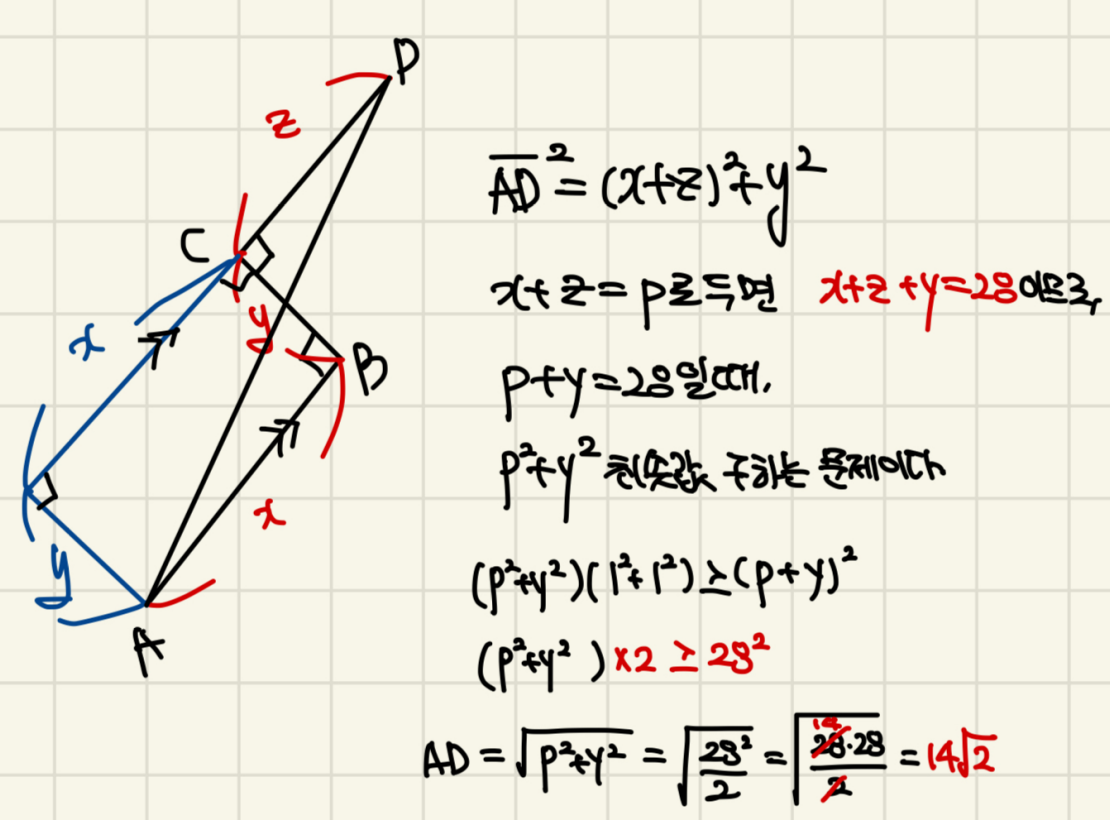 D
z
C
x
y
B
x
y
A
AD² = (x+z)²+y²
x+z=p로두면 x+z+y=28이므로,
p+y=28일때,
p²+y² 최솟값 구하는 문제이다
(p²+y²)(1²+1²)≥(p+y)²
(p²+y²)×2≥28²
AD = √(p²+y²) = √(28²/2) = √(28·28/2) 14 = 14√2